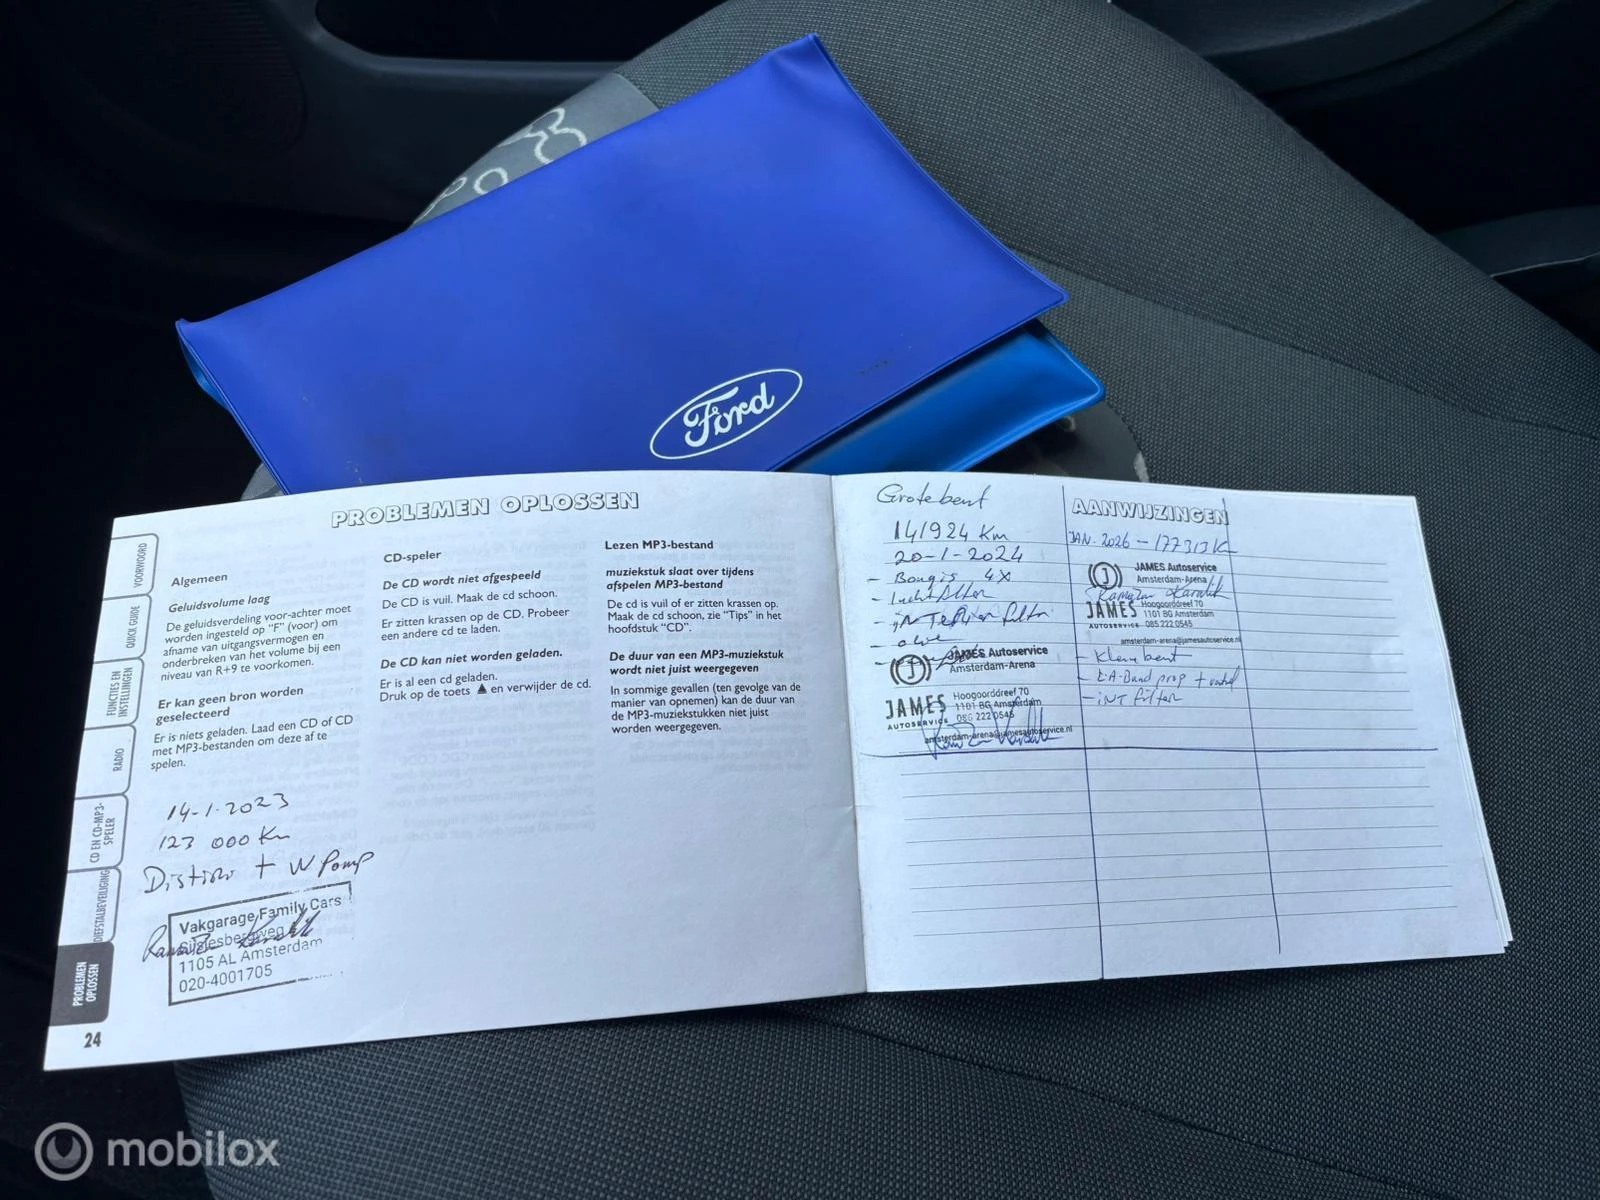 Ford
PROBLEMEN OPLOSSEN
VOORWOORD
QUICK GUIDE
FUNCTIES EN
INSTELLINGEN
RADIO
CD EN CD-MP3-
SPELER
DIEFSTALBEVEILIGING
PROBLEMEN
OPLOSSEN
Algemeen
Geluidsvolume laag
De geluidsverdeling voor-achter moet
worden ingesteld op "F" (voor) om
afname van uitgangsvermogen en
onderbreken van het volume bij een
niveau van R+9 te voorkomen.
Er kan geen bron worden
geselecteerd
Er is niets geladen. Laad een CD of CD
met MP3-bestanden om deze af te
spelen.
CD-speler
De CD wordt niet afgespeeld
De CD is vuil. Maak de cd schoon.
Er zitten krassen op de CD. Probeer
een andere cd te laden.
De CD kan niet worden geladen.
Er is al een cd geladen.
Druk op de toets ▲ en verwijder de cd.
Lezen MP3-bestand
muziekstuk slaat over tijdens
afspelen MP3-bestand
De cd is vuil of er zitten krassen op.
Maak de cd schoon, zie "Tips" in het
hoofdstuk "CD".
De duur van een MP3-muziekstuk
wordt niet juist weergegeven
In sommige gevallen (ten gevolge van de
manier van opnemen) kan de duur van
de MP3-muziekstukken niet juist
worden weergegeven.
14-1-2023
123 000 Km
+ W Pomp
Vakgarage Family Cars
1105 AL Amsterdam
020-4001705
24
Grotebeurt
141924 Km
20-1-2024
- Bougis 4x
- Luchtfilter
- olie
JAMES Autoservice
Amsterdam-Arena
JAMES
AUTOSERVICE
Hoogoorddreef 70
1101 BG Amsterdam
085 222 0545
amsterdam-arena@jamesautoservice.nl
AANWIJZINGEN
JAN. 2026 - 177313 K
JAMES Autoservice
Amsterdam-Arena
JAMES
AUTOSERVICE
Hoogoorddreef 70
1101 BG Amsterdam
085 222 0545
amsterdam-arena@jamesautoservice.nl
- Kleinebeurt
- iNT filter
mobilox